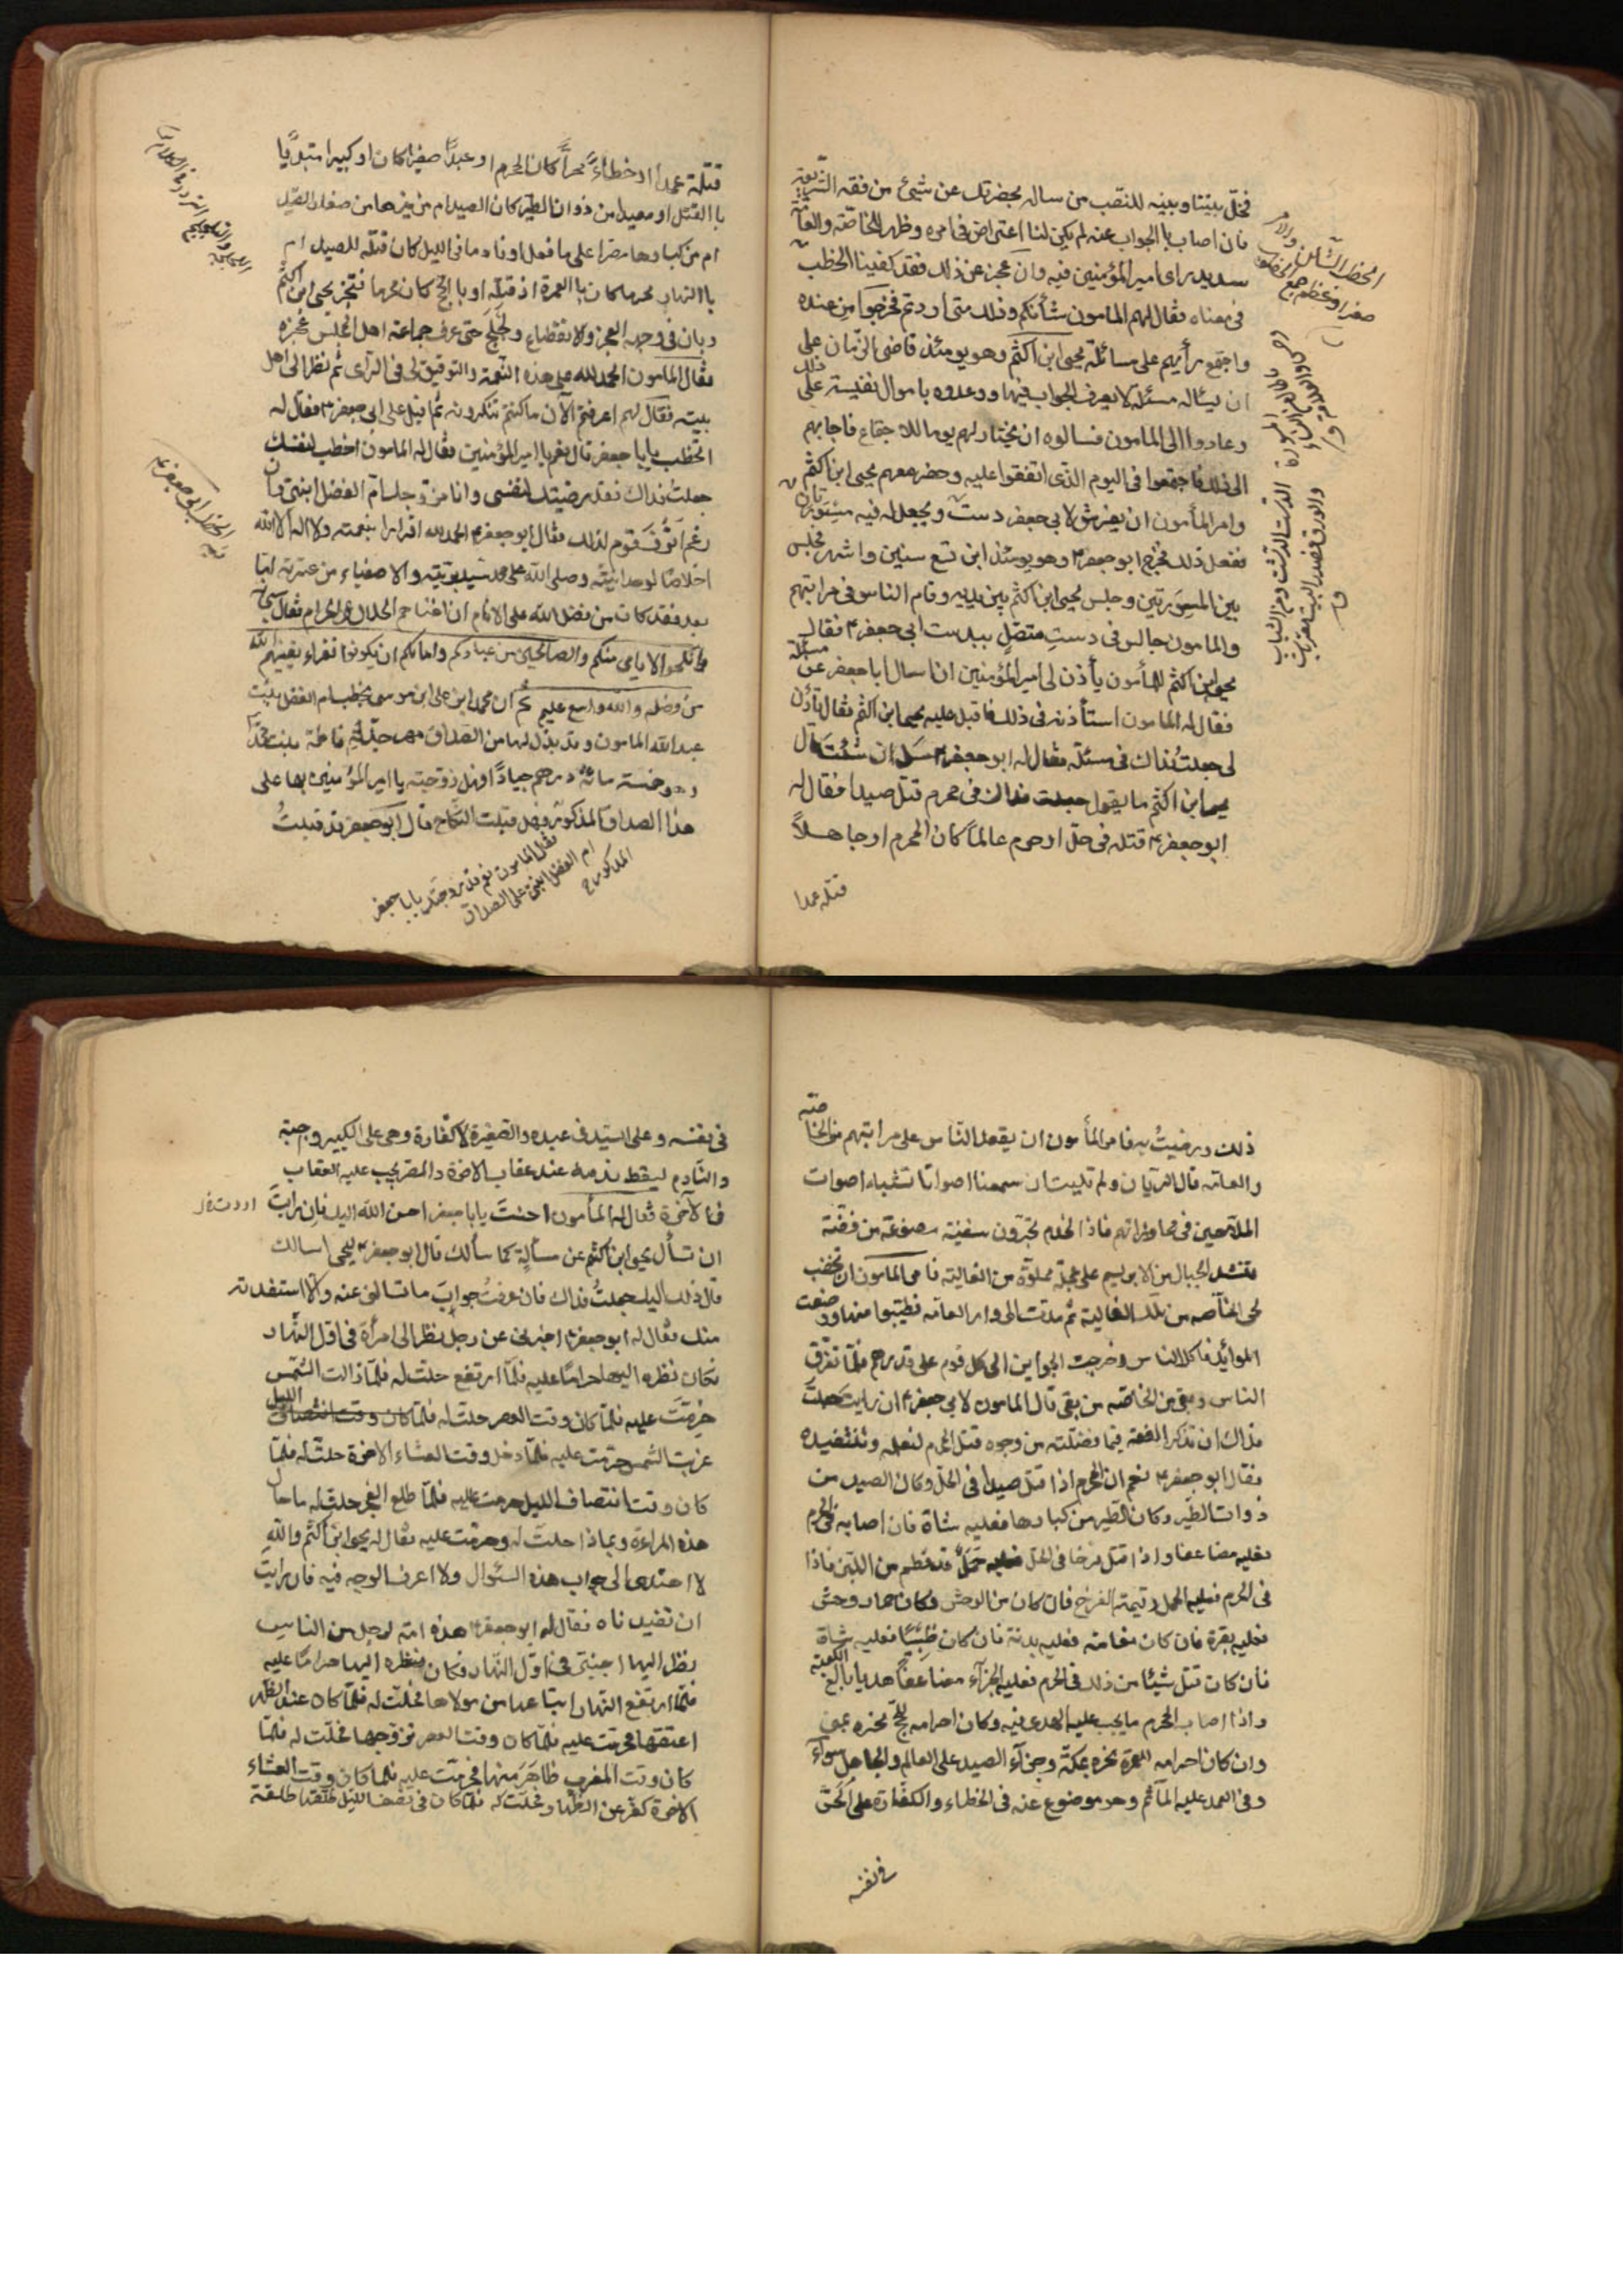 فخلّ بيننا وبينه للنصب من ساله بحضرتك عن شيئ من فقه الشريعة
فان اصاب باالجواب عنه لم يكن لنا اعتراض فى امره وظهر للخاصّة والعامّة
سديد راى امير المؤمنين فيه وان عجز عن ذلك فقد كفينا الخطب
فى معناه فقال لهم المامون شأنكم وذلك متى اردتم فخرجوا من عنده
واجتمع رأيهم على مسائلة يحيى ابن اكثم وهو يومئذ قاضى الزمان على
ان يسئاله مسئلة لا يعرف الجواب فيها ووعدوه باموال نفيسة على ذلك
وعادوا الى المامون فسالوه ان يختار لهم يوما للاجتماع فاجابهم
الى ذلك فاجتمعوا فى اليوم الذى اتفقوا عليه وحضر معهم يحيى ابن اكثم
وامر المأمون ان يفرش لابى جعفر دست ويجعل له فيه مسورتان
ففعل ذلك فخرج ابو جعفر وهو يومئذ ابن تسع سنين واشهر فجلس
بين المسورتين وجلس يحيى ابن اكثم بين يديه وقام الناس فى مراتبهم
والمامون جالس فى دست متصل بدست ابى جعفر فقال
يحيى ابن اكثم للمأمون يأذن لى امير المؤمنين ان اسال ابا جعفر عن مسئلة
فقال له المامون استأذنه فى ذلك فاقبل عليه يحيى ابن اكثم فقال تأذن
لى جعلت فداك فى مسئلة فقال له ابو جعفر سل ان شئت قال
يحيى ابن اكثم ما يقول جعلت فداك فى محرم قتل صيدا فقال له
ابو جعفر قتله فى حلّ او حرم عالماً كان المحرم او جاهلاً
قتله عمدا
قتله عمدا او خطاءً حرّاً كان المحرم او عبدًا صغيرا كان او كبيرا مبتديا
باالقتل او معيدا من ذوات الطير كان الصيد ام من غيرها من صغار الصيد
ام من كبارها مصرا على ما فعل او نادما فى الليل كان قتله للصيد ام
باالنهار محرما كان باالعمرة اذ قتله او باالحج كان محرما فتحيّر يحيى ابن اكثم
وبان فى وجهه العجز والانقطاع ولجلج حتى عرف جماعة اهل المجلس عجزه
فقال المامون الحمد لله على هذه النعمة والتوفيق لى فى الرّأى ثم نظر الى اهل
بيته فقال لهم اعرفتم الآن ما كنتم تنكرونه ثم اقبل على ابى جعفر فقال له
اتخطب يابا جعفر قال نعم يا امير المؤمنين فقال له المامون اخطب لنفسك
جعلت فداك فقد رضيتك لنفسى وانا مزوجك ام الفضل ابنتى وان
رغم انوف قوم لذلك فقال ابو جعفر الحمد لله اقرارا بنعمته ولا اله الا الله
اخلاصا لوحدانيته وصلى الله على محمد سيد بريته والاصفياء من عترته امّا
بعد فقد كان من فضل الله على الانام ان اغناهم بالحلال عن الحرام فقال سبحانه
وانكحوا الايامى منكم والصالحين من عبادكم وامائكم ان يكونوا فقراء يغنيهم الله
من فضله والله واسع عليم ثم ان محمد ابن على ابن موسى يخطب ام الفضل بنت
عبد الله المامون وقد بذل لها من الصداق مهر جدّته فاطمة بنت محمد
وهو خمسة مائة درهم جيادًا فهل زوجته يا امير المؤمنين بها على
هذا الصداق المذكور فهل قبلت النكاح قال ابو جعفر قد قبلتُ
فقال المامون نعم قد زوجتك يابا جعفر
ام الفضل ابنتى على الصداق
المذكور
ذلك ورضيتُ به فامر المأمون ان يقعد الناس على مراتبهم من الخاصّة
والعامّة قال الريّان ولم نلبث ان سمعنا اصواتا تشبه اصوات
الملاحين فى محاوراتهم فاذا الخدم يجرّون سفينة مصنوعة من فضة
تشد الحبال من الابريسم على عجلة مملوّة من الغالية فامر المامون ان تخضب
لحى الخاصّة من تلك الغالية ثم مدّت الى دار العامّة فطيّبوا منها ووضعت
الموائد فاكل الناس وخرجت الجوايز الى كل قوم على قدرهم فلمّا تفرّق
الناس وبقى من الخاصّة من بقى قال المامون لابى جعفر ان رايت جعلت
فداك ان تذكر الفقه فيما فصّلته من وجوه قتل المحرم لنعلمه ونستفيده
فقال ابو جعفر نعم ان المحرم اذا قتل صيدا فى الحلّ وكان الصيد من
ذوات الطّير وكان الطّير من كبارها فعليه شاة فان اصابه فى الحرم
فعليه مضاعفا واذا قتل فرخا فى الحل فعليه حَمَلٌ قد فطم من اللبن فاذا
فى الحرم فعليه الحمل وقيمة الفرخ فان كان من الوحش وكان حمار وحش
فعليه بقرة فان كان نعامة فعليه بدنة فان كان ظبيًا فعليه شاة
فان كان قتل شيئا من ذلك فى الحرم فعليه الجزاء مضاعفا هديا بالغ الكعبة
واذا اصاب المحرم ما يجب عليه الهدى فيه وكان احرامه للحجّ نحره بمنى
وان كان احرامه للعمرة نحره بمكّة وجزآء الصيد على العالم والجاهل سوآء
وفى العمد عليه المآثم وهو موضوع عنه فى الخطاء والكفّارة على الحرّ
فى نفسه
فى نفسه وعلى السيّد فى عبده والصغير لا كفّارة وهى على الكبير واجبة
والنّادم يسقط ندمه عنه عقاب الاخرة والمصر يجب عليه العقاب
فى الآخرة فقال له المأمون احسنت يابا جعفر احسن الله اليك فان رايت
ان تسأل يحيى ابن اكثم عن مسألة كما سألك قال ابو جعفر ليحيى اسالك
قال ذلك اليك جعلتُ فداك فان عرفتُ جواب ما تسالنى عنه والّا استفدته
منك فقال له ابو جعفر اخبرنى عن رجل نظر الى امرأة فى اوّل النّهار
فكان نظره اليها حرامًا عليه فلمّا ارتفع حلّت له فلمّا زالت الشّمس
حرمت عليه فلمّا كان وقت العصر حلّت له فلمّا كان وقت انتصاف الليل
غربت الشمس حرمت عليه فلمّا دخل وقت العشاء الاخرة حلّت له فلمّا
كان وقت انتصاف الليل حرمت عليه فلمّا طلع الفجر حلّت له ما حال
هذه المراءة وبماذا حلّت له وحرمت عليه فقال له يحيى ابن اكثم والله
لا اهتدى الى جواب هذه السّؤال ولا اعرف الوجه فيه فان رايت
ان تفيدناه فقال له ابو جعفر هذه امة لرجل من الناس
نظر اليها اجنبى فى اوّل النّهار فكان نظره اليها حرامًا عليه
فلمّا ارتفع النهار ابتاعها من مولاها فحلّت له فلمّا كان عند الظهر
اعتقها فحرمت عليه فلمّا كان وقت العصر تزوجها فحلّت له فلمّا
كان وقت المغرب ظاهر منها فحرمت عليه فلما كان وقت العشاء
الاخرة كفّر عن الظّهار فحلّت له فلمّا كان فى نصف الليل طلّقها طلقة